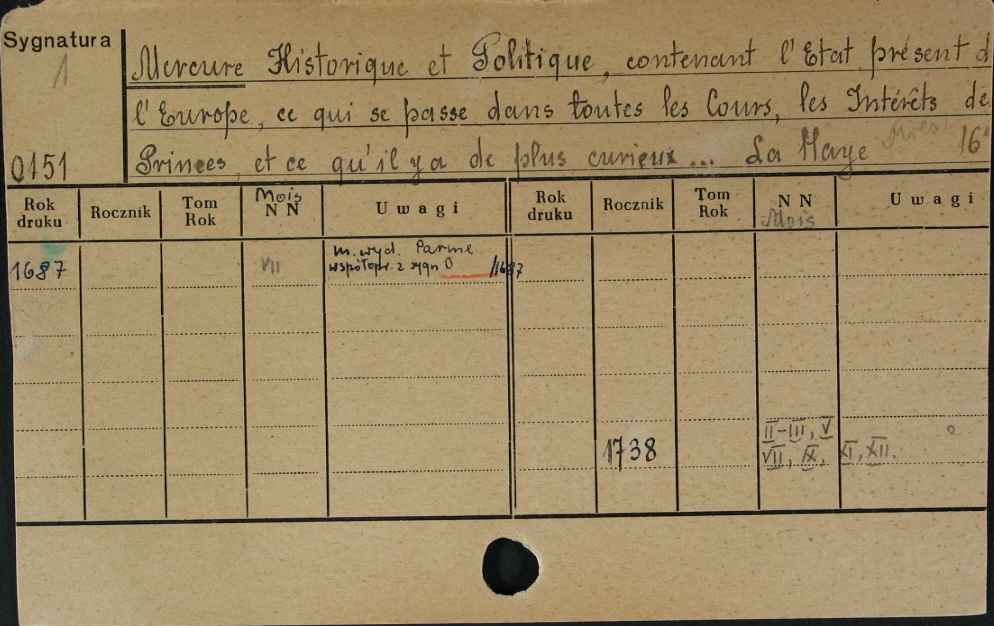 Sygnatura
1
0151
Mercure Historique et Politique, contenant l'Etat présent d
l'Europe, ce qui se passe dans toutes les Cours, les Intérêts de
Princes, et ce qu'il y a de plus curieux... La Haye 16°
Rok druku Rocznik Tom Rok Mois N N Uwagi Rok druku Rocznik Tom Rok N N Mois Uwagi
1687 VII m. wyd. Parme
współopr. z sygn O /1687
1738 II-III, V
VII, IX, XI, XII.